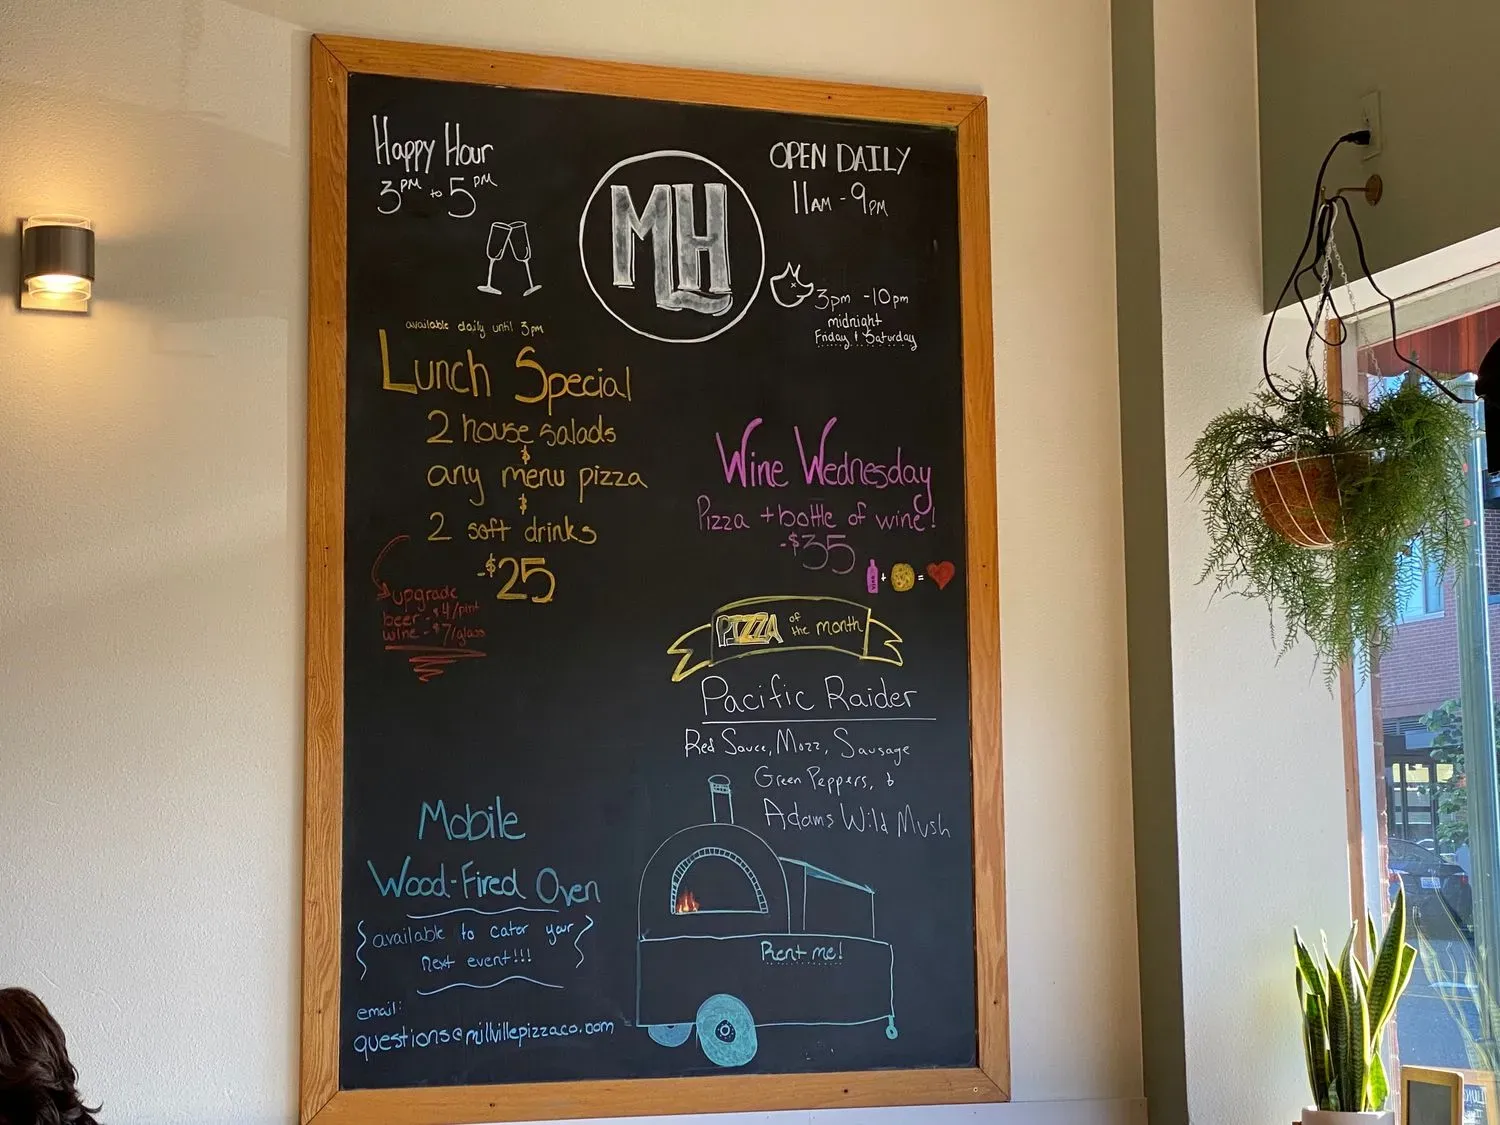 Happy Hour
3PM to 5PM
MH
OPEN DAILY
11AM - 9PM
3pm - 10pm
midnight
Friday & Saturday
available daily until 3pm
Lunch Special
2 house salads
&
any menu pizza
&
2 soft drinks
-$25
upgrade
beer - $4/pint
wine - $7/glass
Wine Wednesday
Pizza + bottle of wine!
-$35
+ =
PIZZA of the month
Pacific Raider
Red Sauce, Mozz, Sausage
Green Peppers, &
Adams Wild Mush
Mobile
Wood-Fired Oven
available to cater your
next event!!!
email:
questions@millvillepizzaco.com
Rent me!